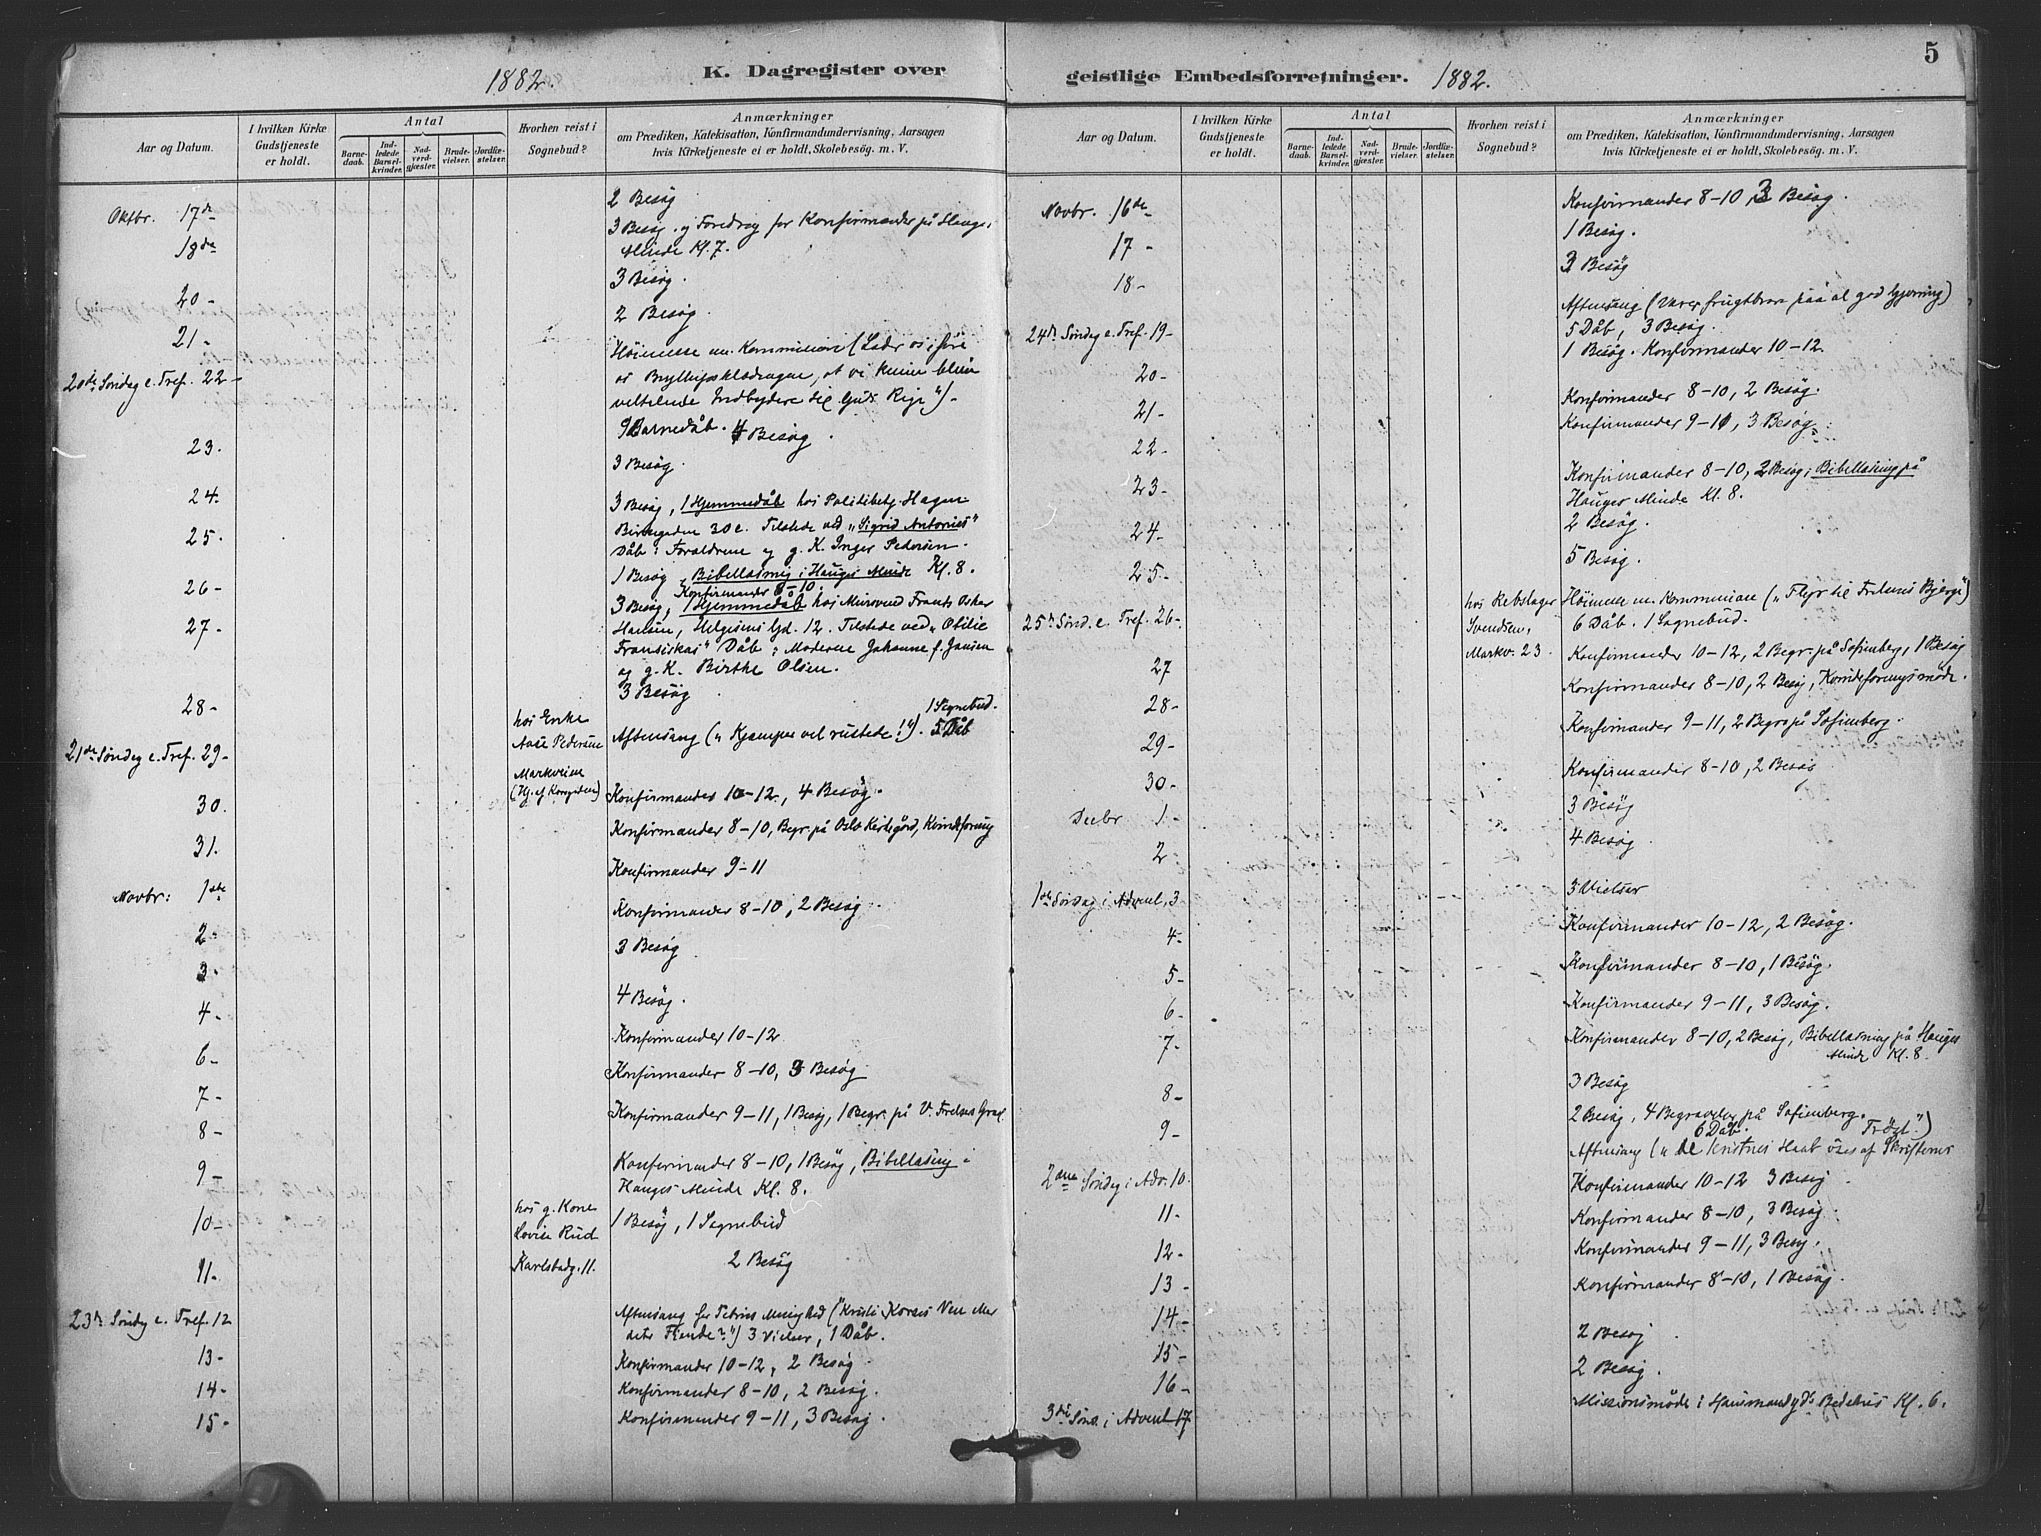 5
1882. K. Dagregister over geistlige Embedsforretninger. 1882.
Aar og Datum.
I hvilken Kirke Gudstjeneste er holdt.
Antal
Barnedaab.
Indledede Barselkvinder.
Nadverdgjæster.
Brudevielser.
Jordfæstelser.
Hvorhen reist i Sognebud?
Anmærkninger
om Prædiken, Katekisation, Konfirmandundervisning, Aarsagen
hvis Kirketjeneste ei er holdt, Skolebesøg. m. V.
Oktbr. 17de
2 Besøg
18de
3 Besøg og Foredrag for Konfirmander på Hauges
Minde Kl. 7.
20-
3 Besøg.
21-
2 Besøg.
20de Søndag e. Tref. 22-
Høimesse m. Kommunion (Lader os iføre
os Bryllupsklædningen, at vi kunne blive
veltalende Indbydere til Guds Rige")-
9 Barnedåb. 4 Besøg.
23.
3 Besøg.
24.
3 Besøg, 1 Hjemmedåb hos Politibetj. Hagen
25.
30 c. Tilstede ved "Sigrid Antonies"
Dåb: Forældrene og g. K. Inger Pedersen.
26-
1 Besøg, Bibellæsning i Hauges Minde Kl. 8.
Konfirmander 8-10.
27-
3 Besøg, 1 Hjemmedåb hos Murersvend Frants Oskar
Hansen, Helgesens Gd. 12. Tilstede ved "Otilie
Fransiskas" Dåb: Moderene Johanne f. Jansen
og g. K. Birthe Olsen.
28-
3 Besøg
21de Søndag e. Tref. 29-
hos Enke
Aase Pedersen
Markveien
1 Sognebud.
Aftensang ("Kjæmper vel rustede!"). 5 Dåb
30.
Konfirmander 10-12, 4 Besøg.
31.
Konfirmander 8-10, Begr. på Oslo Kirkegård, Kvindeforening
Novbr: 1ste
Konfirmander 9-11
2-
Konfirmander 8-10, 2 Besøg
3-
3 Besøg
4-
4 Besøg.
6-
Konfirmander 10-12
7-
Konfirmander 8-10, 3 Besøg
8-
Konfirmander 9-11, 1 Besøg, 1 Begr. på V. Frelsers Grav
9-
Konfirmander 8-10, 1 Besøg, Bibellæsning i
Hauges Minde Kl. 8.
10-
hos g. Kone
Lovise Rud
Karlsbadg. 11.
1 Besøg, 1 Sognebud
11-
2 Besøg
23de Søndag e. Tref. 12
Aftensang for Petrus Menighed ("Kristi Korses Ven eller
dets Fiende?") 3 Vielser, 1 Dåb.
13-
Konfirmander 10-12, 2 Besøg
14-
Konfirmander 8-10, 2 Besøg.
15-
Konfirmander 9-11, 3 Besøg.
Aar og Datum.
I hvilken Kirke Gudstjeneste er holdt.
Antal
Barnedaab.
Indledede Barselkvinder.
Nadverdgjæster.
Brudevielser.
Jordfæstelser.
Hvorhen reist i Sognebud?
Anmærkninger
om Prædiken, Katekisation, Konfirmandundervisning, Aarsagen
hvis Kirketjeneste ei er holdt, Skolebesøg. m. V.
Novbr. 16de
Konfirmander 8-10, 3 Besøg.
17-
1 Besøg.
18-
3 Besøg
24de Søndag e. Tref. 19-
Aftensang (Værer frugtbare paa al god Gjerning)
5 Dåb, 3 Besøg.
20-
1 Besøg. Konfirmander 10-12.
21-
Konfirmander 8-10, 2 Besøg.
22-
Konfirmander 9-11, 3 Besøg
23-
Konfirmander 8-10, 2 Besøg, Bibellæsning på
Hauges Minde Kl. 8.
24-
2 Besøg.
25-
5 Besøg.
25de Sønd. e. Tref. 26-
hos Rebslager
Svendsen,
Markv. 23
Høimesse m. Kommunion ("Flyr til Frelsens Bjerge")
6 Dåb. 1 Sognebud.
27
Konfirmander 10-12, 2 Begr. på Sofienberg, 1 Besøg
28-
Konfirmander 8-10, 2 Besøg, Kvindeforeningsmøde.
29-
Konfirmander 9-11, 2 Begr. på Sofienberg.
30-
Konfirmander 8-10, 2 Besøg
Decbr 1-
3 Besøg
2-
4 Besøg
1ste Søndag i Advent, 3
3 Vielser
4-
Konfirmander 10-12, 2 Besøg.
5-
Konfirmander 8-10, 1 Besøg.
6-
Konfirmander 9-11, 3 Besøg.
7-
Konfirmander 8-10, 2 Besøg, Bibellæsning på Hauges
Minde Kl. 8.
8-
3 Besøg
9-
2 Besøg, 4 Begravelser på Sofienberg.
2den Søndag i Adv. 10.
6 Dåb.
Aftensang ("De Kristnes Haab øses af Skrifternes Trøst")
11-
Konfirmander 10-12 3 Besøg
12-
Konfirmander 8-10, 3 Besøg.
13-
Konfirmander 9-11, 3 Besøg.
14-
Konfirmander 8-10, 1 Besøg.
15-
2 Besøg
16-
2 Besøg.
3die Sønd. i Advent 17
Missionsmøde i Bedehus Kl. 6.